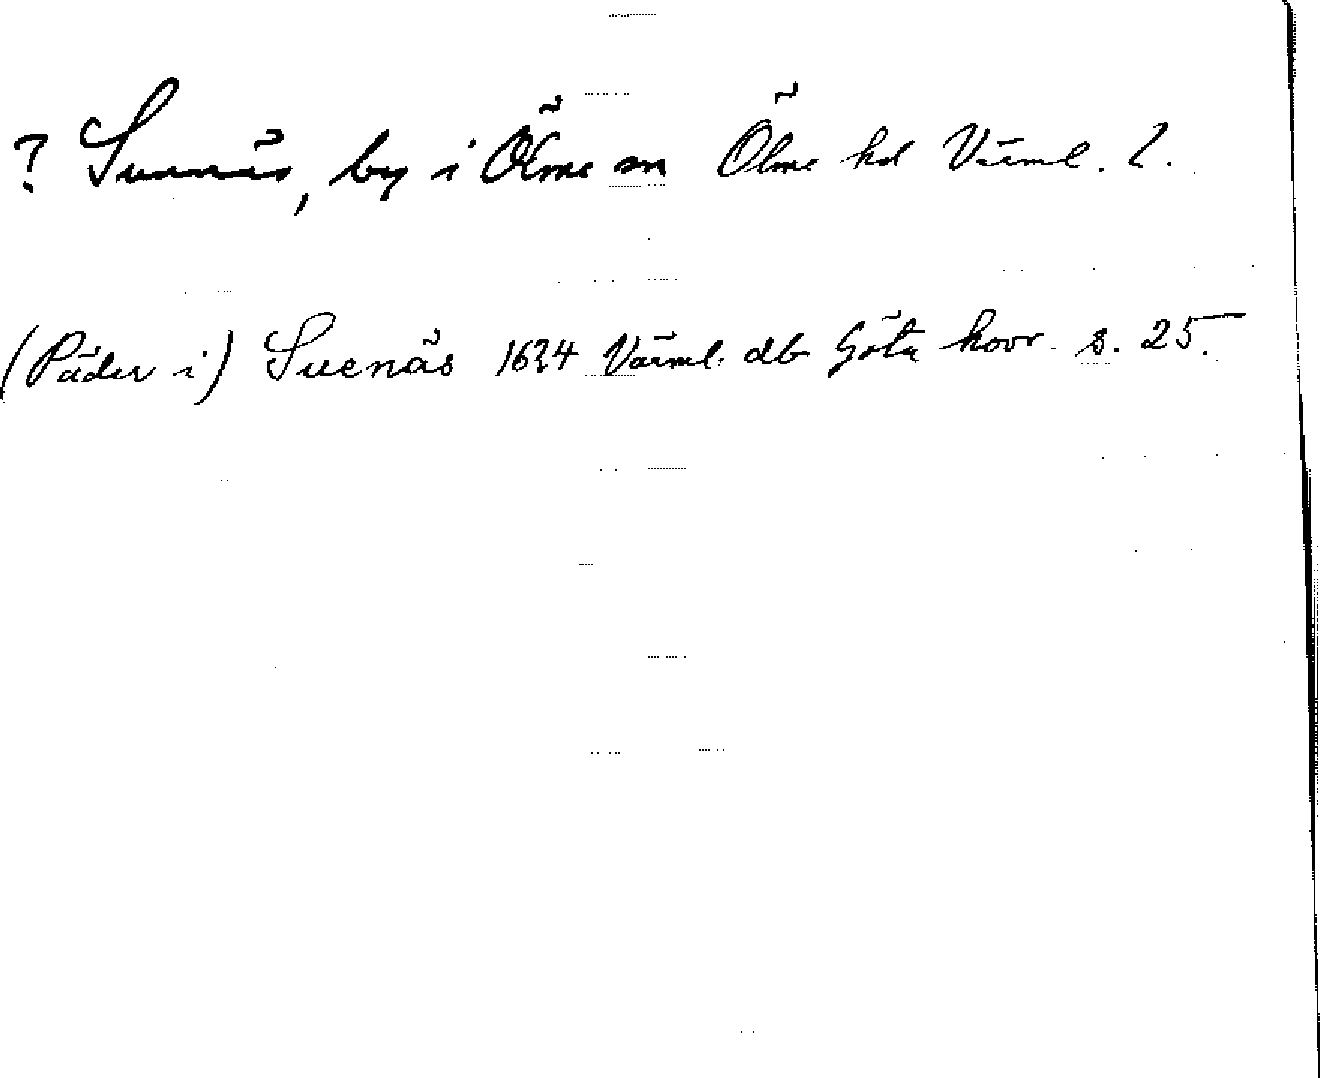 ? Sunnäs, by i Ölme sn Ölme hd Värml. l.
(Päder i) Suenäs 1624 Värml. db Göta hovr. s. 25.